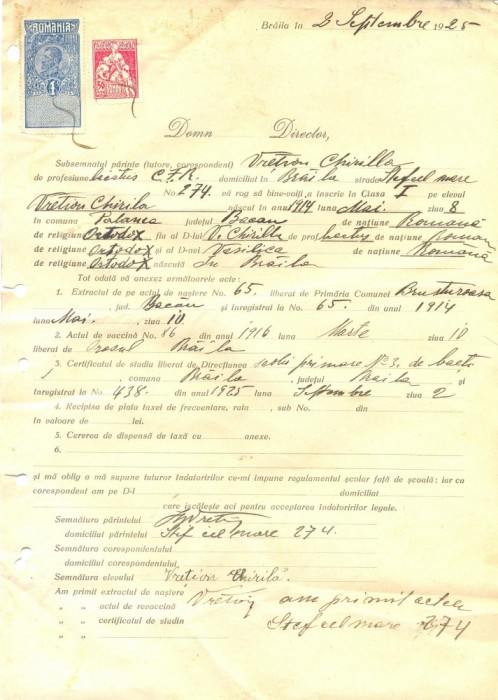 ROMANIA
1
Brăila în 2 Septembre 1925
Domn Director,
Subsemnatul părinte (tutore, corespondent) Vretion Chirilla
de profesiune C.F.R. domiciliat în Brăila strada Ștef cel mare
No 274. vă rog să bine-voiți a înscrie în Clasa I pe elevul
Vretion Chirila născut în anul 1914 luna Mai. ziua 8
în comuna Palanca județul Bacau de națiune Română
de religiune Ortodox fiu al D-lui V. Chirilla de prof. de națiune Română
de religiune Ortodox și al D-nei Vasilica de națiune Română
de religiune Ortodox născută În Brăila
Tot odată vă anexez următoarele acte:
1. Extractul de pe actul de naștere No. 65. liberat de Primăria Comunei Brusturoasa
jud. Bacău și înregistrat la No. 65. din anul 1914
luna Mai. ziua 10
2. Actul de vaccină No. 86 din anul 1916 luna Marte ziua 10
liberat de Orașul Brăila
3. Certificatul de studiu liberat de Direcțiunea școlii primare No 3. de baeti
, comuna Brăila, județul Braila și
înregistrat la No. 438. din anul 1925 luna Septembre ziua 2
4. Recipisa de plata taxei de frecventare, rata , sub No. din
în valoare de lei.
5. Cererea de dispensă de taxă cu anexe.
6.
și mă oblig a mă supune tuturor îndatoririlor ce-mi impune regulamentul școlar față de școală: iar ca
corespondent am pe D-l domiciliat
care iscălește aci pentru acceptarea îndatoririlor legale.
Semnătura părintelui
domiciliul părintelui Ștef cel mare 274.
Semnătura corespondentului
domiciliul corespondentului
Semnătura elevului Vretion Chirilă.
Am primit extractul de naștere Vretion am primit actele
„ „ actul de revaccină Ștef cel mare 274
„ „ certificatul de studiu